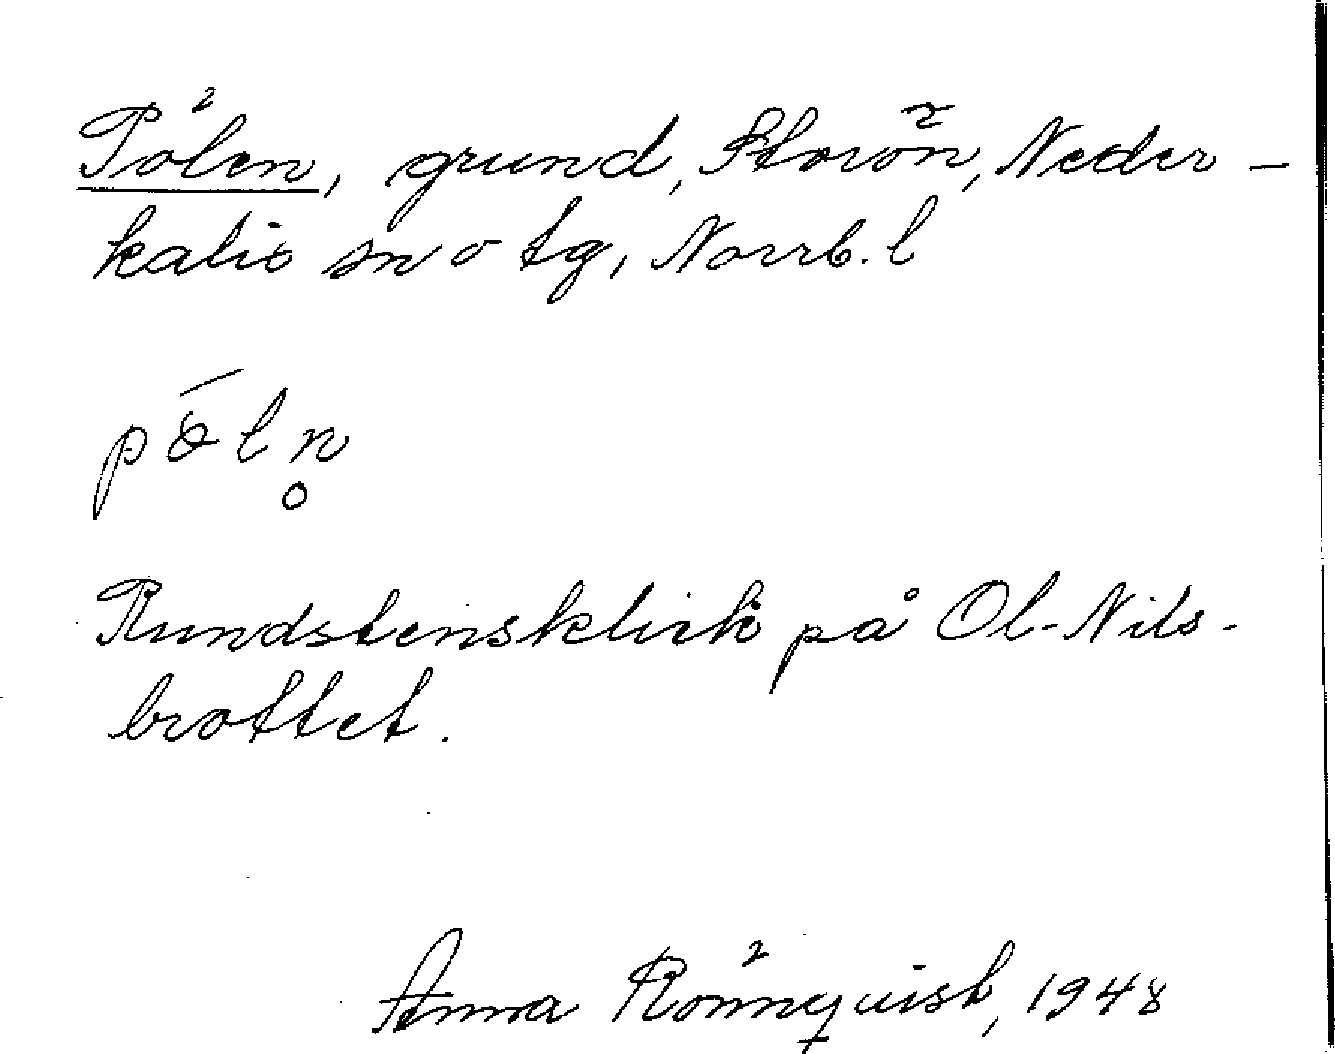 Pölen, grund, Storön, Neder-
kalix sn o tg, Norrb. l
Rundstensklick på Ol-Nils-
brottet.
Anna Rönnquist, 1948